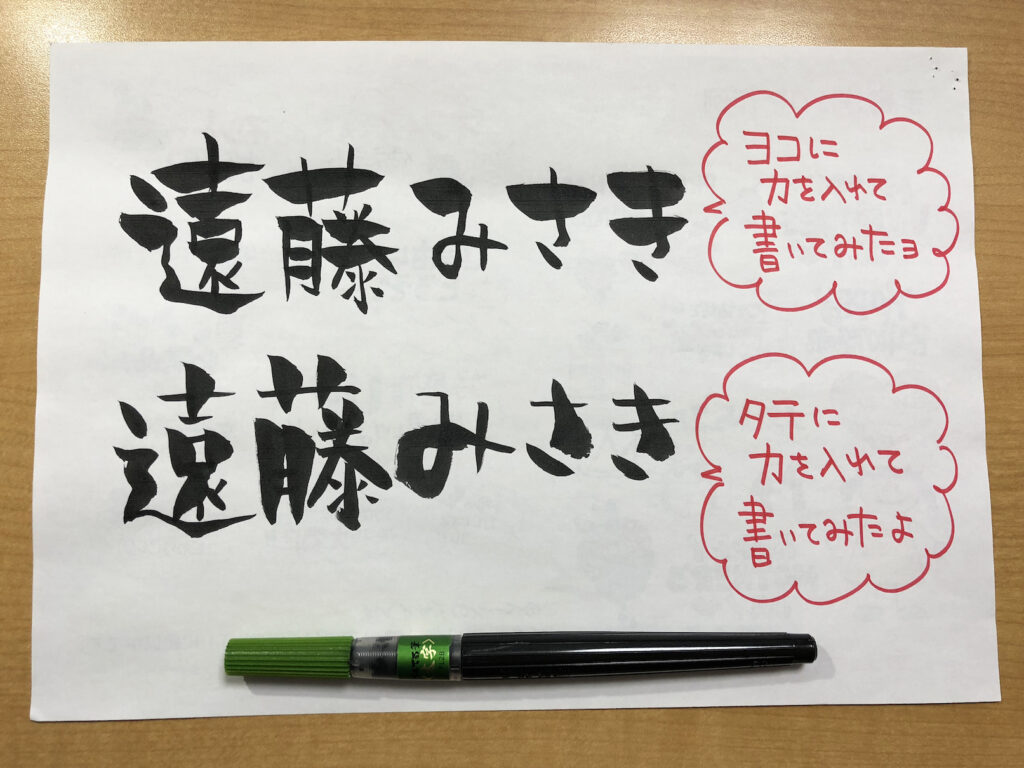 遠藤みさき
ヨコに
力を入れて
書いてみたョ
遠藤みさき
タテに
力を入れて
書いてみたよ